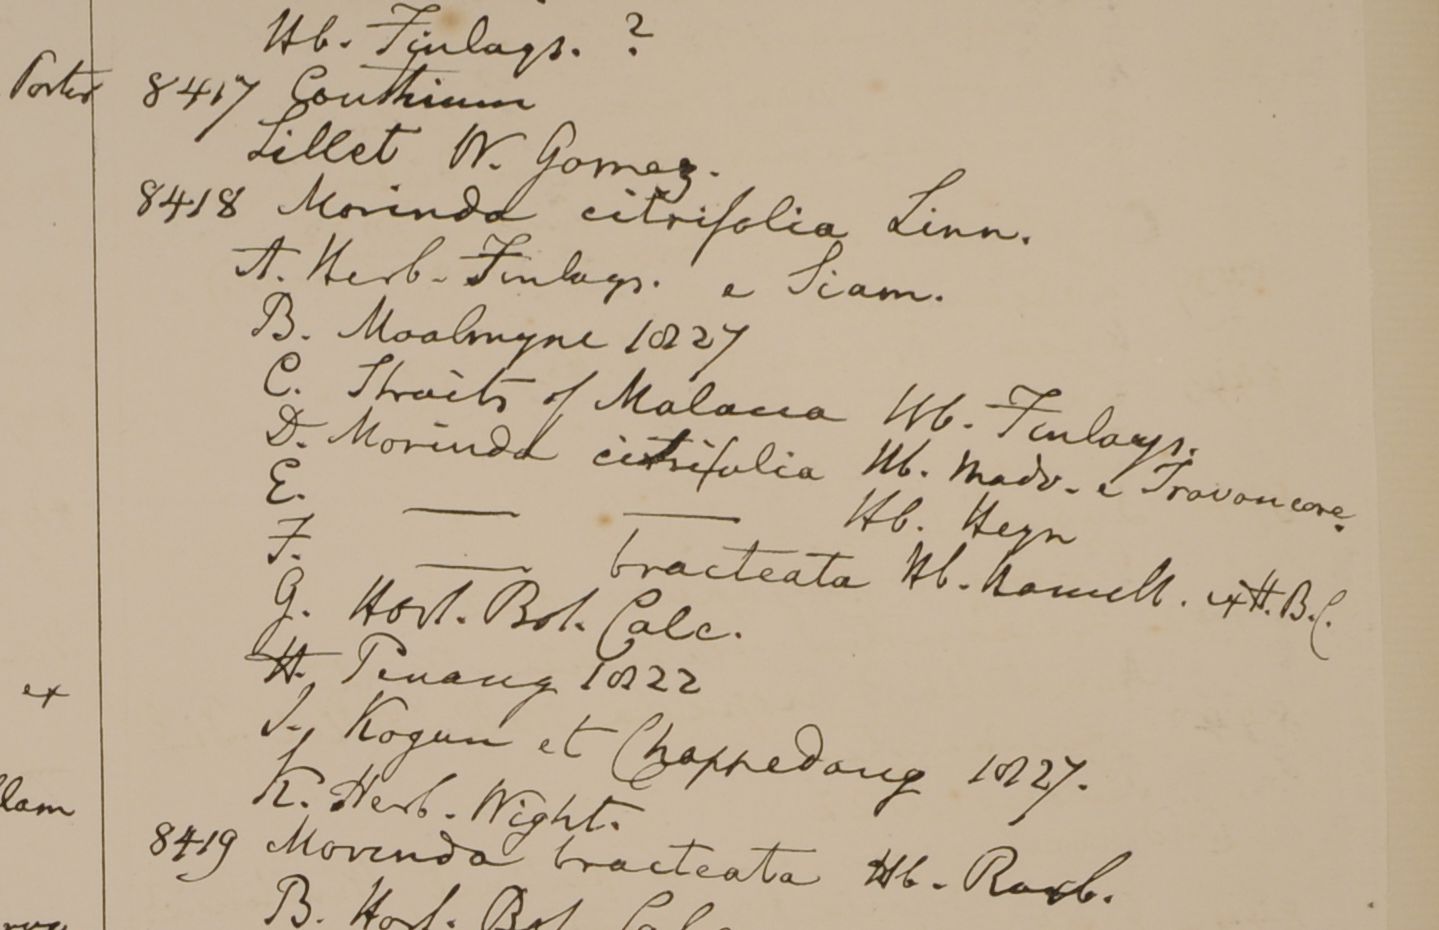 Hb. Finlays. ?
Porter 8417 Canthium
Sillet W. Gomez.
8418 Morinda citrifolia Linn.
A. Herb. Finlays. e Siam.
B. Moalmyne 1827
C. Straits of Malacca Hb. Finlays.
D. Morinda citrifolia Hb. Madr. e Travancore.
E. — — Hb. Heyn
F. — bracteata Hb. Hamilt. ex H.B.C.
G. Hort. Bot. Calc.
H. Penang 1822
ex
J. Kogun et Chappedong 1827.
K. Herb. Wight.
llam
8419 Morinda bracteata Hb. Roxb.
B. Hort. Bot. Calc